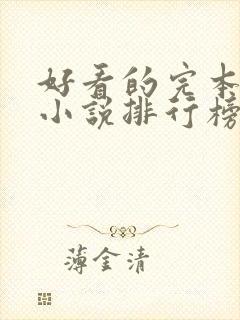 好看的完本
小说排行榜
薄金清